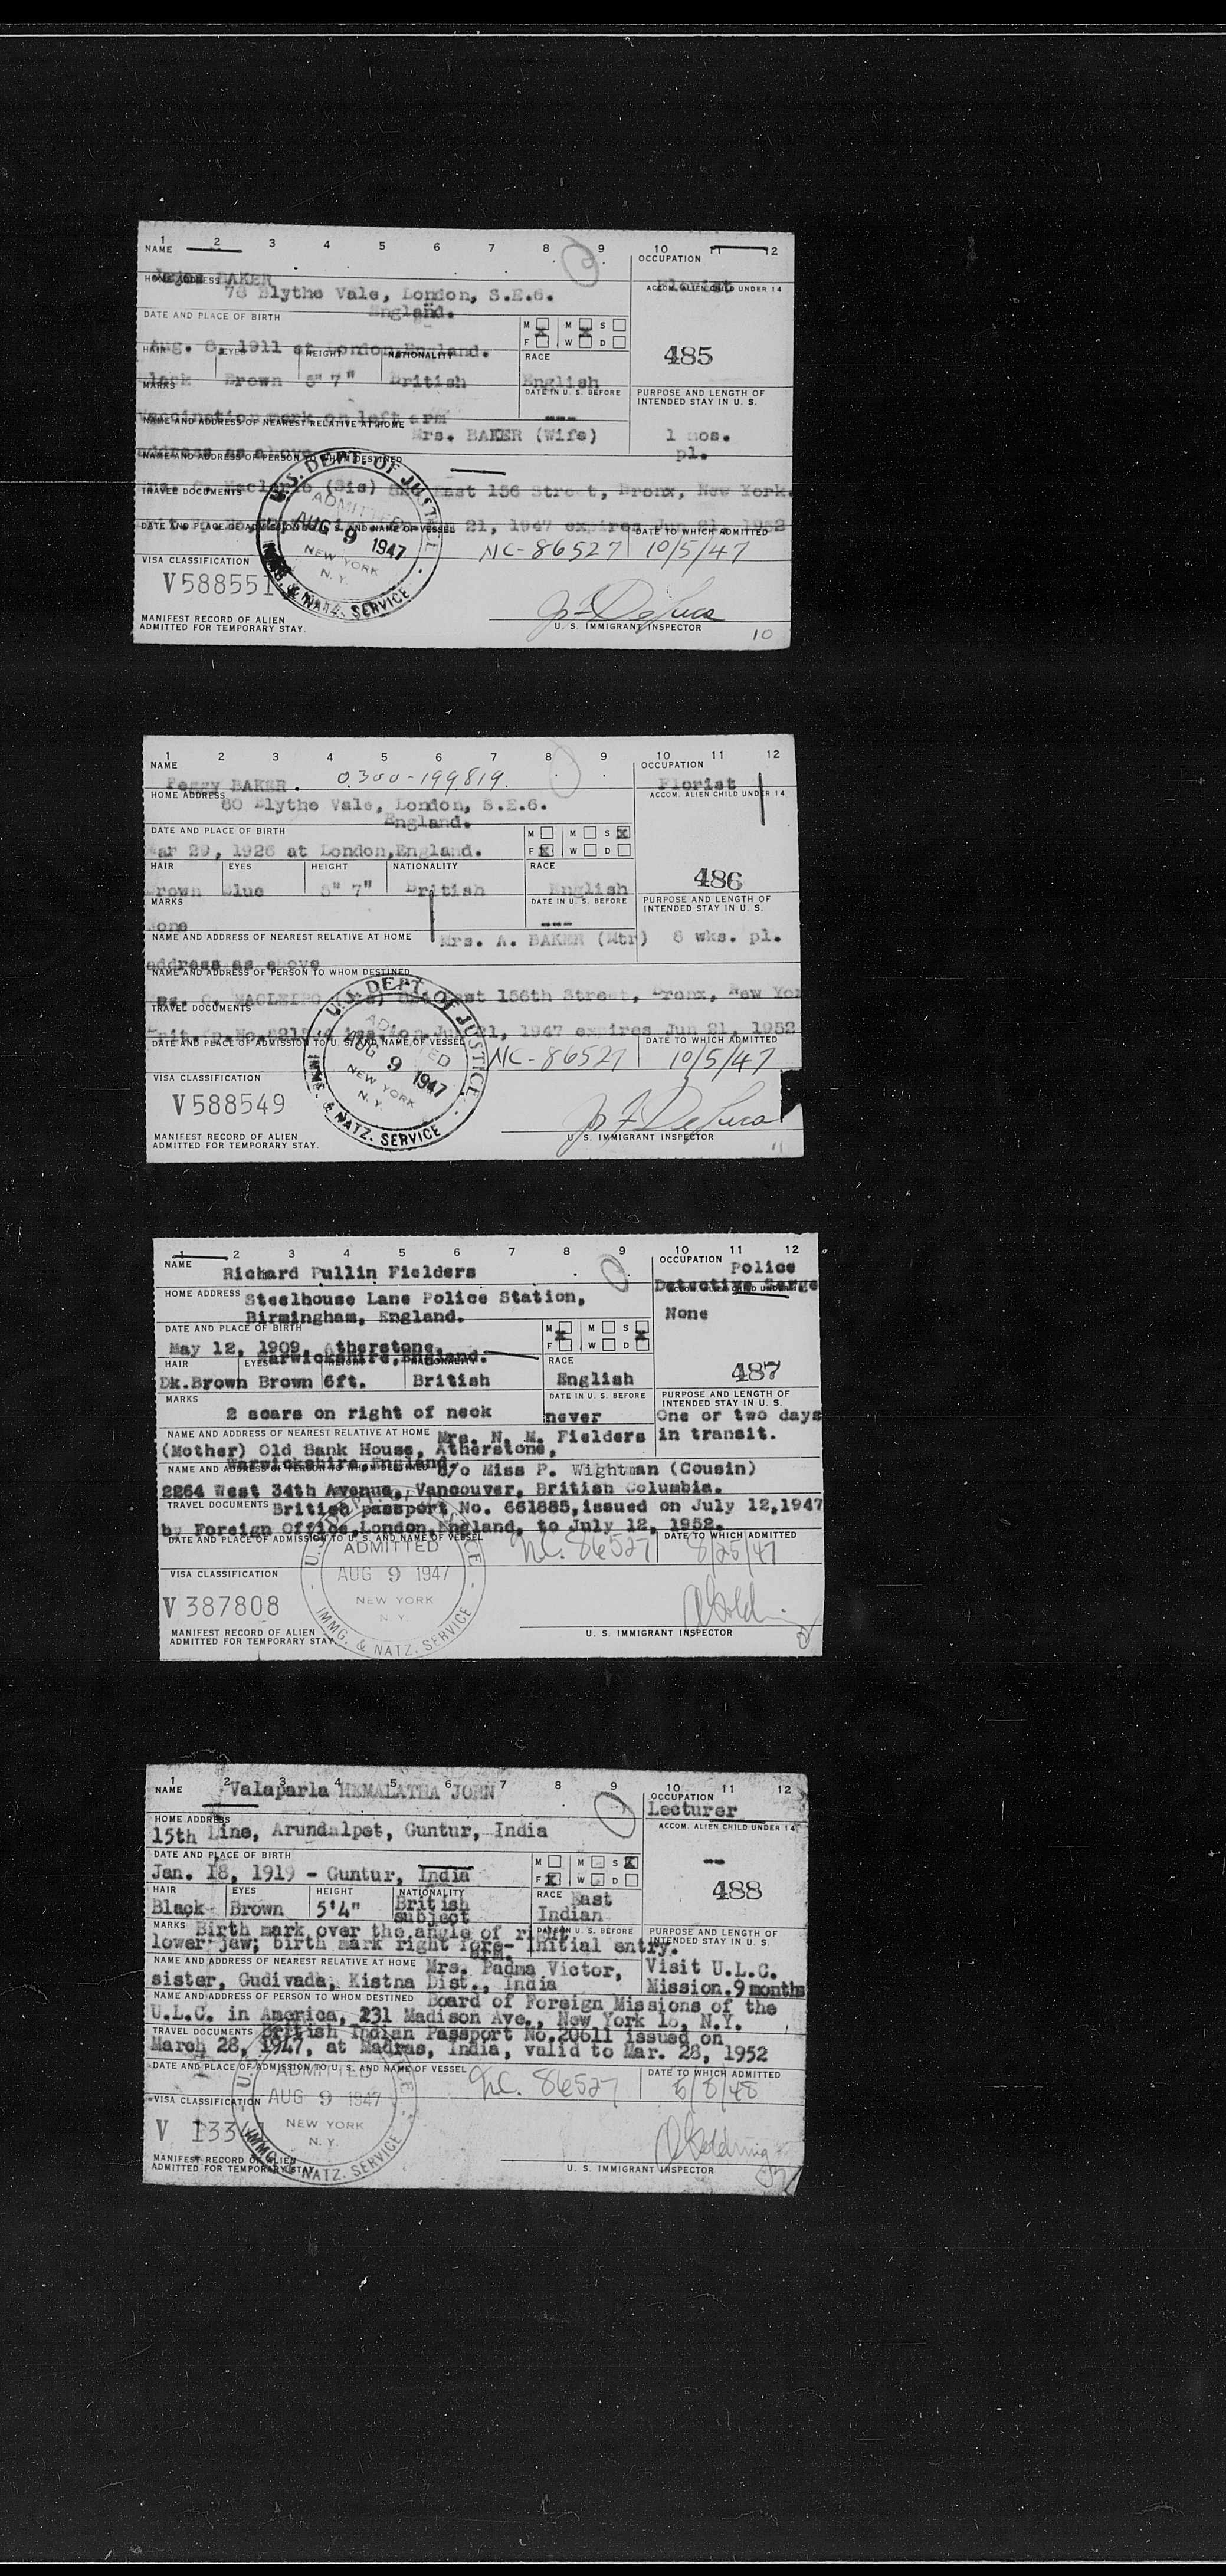 1 2 3 4 5 6 7 8 9 10 11 12
NAME OCCUPATION
BAKER Florist
HOME ADDRESS ACCOM. ALIEN CHILD UNDER 14
78 Blythe Vale, London, S.E.6.
England.
DATE AND PLACE OF BIRTH M M S
F W D
Aug. 8, 1911 at London, England. 485
HAIR EYES HEIGHT NATIONALITY RACE
Black Brown 5" 7" British English
MARKS DATE IN U. S. BEFORE PURPOSE AND LENGTH OF
INTENDED STAY IN U. S.
Vaccination mark on left arm ---
NAME AND ADDRESS OF NEAREST RELATIVE AT HOME
Mrs. BAKER (Wife) 1 mos.
address as above pl.
NAME AND ADDRESS OF PERSON TO WHOM DESTINED
(Sis) East 156 Street, Bronx, New York.
TRAVEL DOCUMENTS
21, 1947 expires Jun 21, 1952
DATE AND PLACE OF ADMISSION TO U. S. AND NAME OF VESSEL DATE TO WHICH ADMITTED
NC-86527 10/5/47
U.S. DEPT. OF JUSTICE
ADMITTED
AUG 9 1947
NEW YORK
N. Y.
IMMG. & NATZ. SERVICE
VISA CLASSIFICATION
V588551
MANIFEST RECORD OF ALIEN
ADMITTED FOR TEMPORARY STAY.
U. S. IMMIGRANT INSPECTOR
10
1 2 3 4 5 6 7 8 9 10 11 12
NAME OCCUPATION
Peggy BAKER. 0300-199819. Florist
HOME ADDRESS ACCOM. ALIEN CHILD UNDER 14
80 Blythe Vale, London, S.E.6.
England.
DATE AND PLACE OF BIRTH M M S X
Mar 29, 1926 at London,England. F X W D
HAIR EYES HEIGHT NATIONALITY RACE 486
Brown Blue 5" 7" British English
MARKS DATE IN U. S. BEFORE PURPOSE AND LENGTH OF
INTENDED STAY IN U. S.
None ---
NAME AND ADDRESS OF NEAREST RELATIVE AT HOME Mrs. A. BAKER (Mtr) 8 wks. pl.
address as above
NAME AND ADDRESS OF PERSON TO WHOM DESTINED
156th Street, Bronx, New Yor
TRAVEL DOCUMENTS
21, 1947 expires Jun 21, 1952
DATE AND PLACE OF ADMISSION TO U. S. AND NAME OF VESSEL DATE TO WHICH ADMITTED
NC-86527 10/5/47
U.S. DEPT. OF JUSTICE
ADMITTED
AUG 9 1947
NEW YORK
N. Y.
IMMG. & NATZ. SERVICE
VISA CLASSIFICATION
V588549
MANIFEST RECORD OF ALIEN
ADMITTED FOR TEMPORARY STAY.
U. S. IMMIGRANT INSPECTOR
11
1 2 3 4 5 6 7 8 9 10 11 12
NAME OCCUPATION Police
Richard Pullin Fielders Detective Serge
HOME ADDRESS Steelhouse Lane Police Station, None
Birmingham, England.
DATE AND PLACE OF BIRTH M X M S X
May 12, 1909, Atherstone, F W D
Warwickshire,England.
HAIR EYES HEIGHT NATIONALITY RACE 487
Dk.Brown Brown 6ft. British English
MARKS DATE IN U. S. BEFORE PURPOSE AND LENGTH OF
INTENDED STAY IN U. S.
2 scars on right of neck never One or two days
NAME AND ADDRESS OF NEAREST RELATIVE AT HOME Mrs. N. M. Fielders in transit.
(Mother) Old Bank House, Atherstone,
Warwickshire,England.
NAME AND ADDRESS OF PERSON TO WHOM DESTINED c/o Miss P. Wightman (Cousin)
2264 West 34th Avenue, Vancouver, British Columbia.
TRAVEL DOCUMENTS British passport No. 661885,issued on July 12,1947
by Foreign Office,London,England, to July 12, 1952.
DATE AND PLACE OF ADMISSION TO U. S. AND NAME OF VESSEL DATE TO WHICH ADMITTED
N.C. 86527 8/25/47
ADMITTED
AUG 9 1947
NEW YORK
N. Y.
IMMG. & NATZ. SERVICE
VISA CLASSIFICATION
V 387808
MANIFEST RECORD OF ALIEN
ADMITTED FOR TEMPORARY STAY.
U. S. IMMIGRANT INSPECTOR
1 2 3 4 5 6 7 8 9 10 11 12
NAME Valaparla HEMALATHA JOHN OCCUPATION
Lecturer
HOME ADDRESS ACCOM. ALIEN CHILD UNDER 14
15th Line, Arundalpet, Guntur, India
DATE AND PLACE OF BIRTH M M S X --
Jan. 18, 1919 - Guntur, India F X W D
HAIR EYES HEIGHT NATIONALITY RACE East 488
Black Brown 5'4" British subject Indian
MARKS Birth mark over the angle of right DATE IN U. S. BEFORE PURPOSE AND LENGTH OF
INTENDED STAY IN U. S.
lower jaw; birth mark right fore-arm. Initial entry.
NAME AND ADDRESS OF NEAREST RELATIVE AT HOME Mrs. Padma Victor, Visit U.L.C.
sister, Gudivada, Kistna Dist., India Mission.9 months
NAME AND ADDRESS OF PERSON TO WHOM DESTINED Board of Foreign Missions of the
U.L.C. in America, 231 Madison Ave., New York 16, N.Y.
TRAVEL DOCUMENTS British Indian Passport No.20611 issued on
March 28, 1947, at Madras, India, valid to Mar. 28, 1952
DATE AND PLACE OF ADMISSION TO U. S. AND NAME OF VESSEL DATE TO WHICH ADMITTED
N.C. 86527
ADMITTED
AUG 9 1947
NEW YORK
N. Y.
IMMG. & NATZ. SERVICE
VISA CLASSIFICATION
MANIFEST RECORD OF ALIEN
ADMITTED FOR TEMPORARY STAY
U. S. IMMIGRANT INSPECTOR